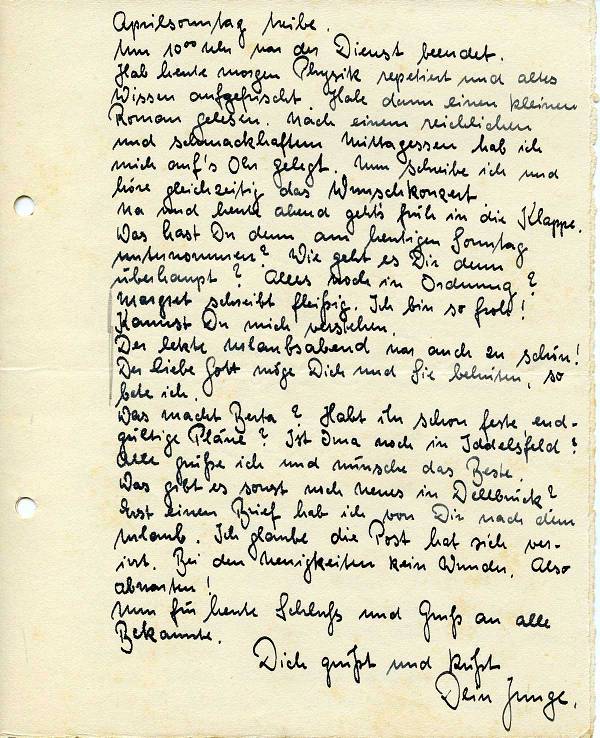 Aprilsonntag trübe.
Um 10⁰⁰ Uhr war der Dienst beendet.
Hab heute morgen Physik repetiert und altes
Wissen aufgefrischt. Habe dann einen kleinen
Roman gelesen. Nach einem reichlichen
und schmackhaften Mittagessen hab ich
mich auf's Ohr gelegt. Nun schreibe ich und
höre gleichzeitig das Wunschkonzert.
Na und heute abend geht's früh in die Klappe.
Was hast Du denn am heutigen Sonntag
unternommen? Wie geht es Dir denn
überhaupt? Alles noch in Ordnung?
Margret schreibt fleißig. Ich bin so froh!
Kannst Du mich verstehen.
Der letzte Urlaubsabend war auch zu schön!
Der liebe Gott möge Dich und Sie behüten, so
bete ich.
Was macht Berta? Habt ihr schon feste, end-
gültige Pläne? Ist Ima noch in Iddelsfeld?
Alle grüße ich und wünsche das Beste.
Was gibt es sonst noch neues in Dellbrück?
Erst einen Brief hab ich von Dir nach dem
Urlaub. Ich glaube die Post hat sich ver-
irrt. Bei den Neuigkeiten kein Wunder. Also
abwarten!
Nun für heute Schluß und Gruß an alle
Bekannte.
Dich grüßt und küßt
Dein Junge.